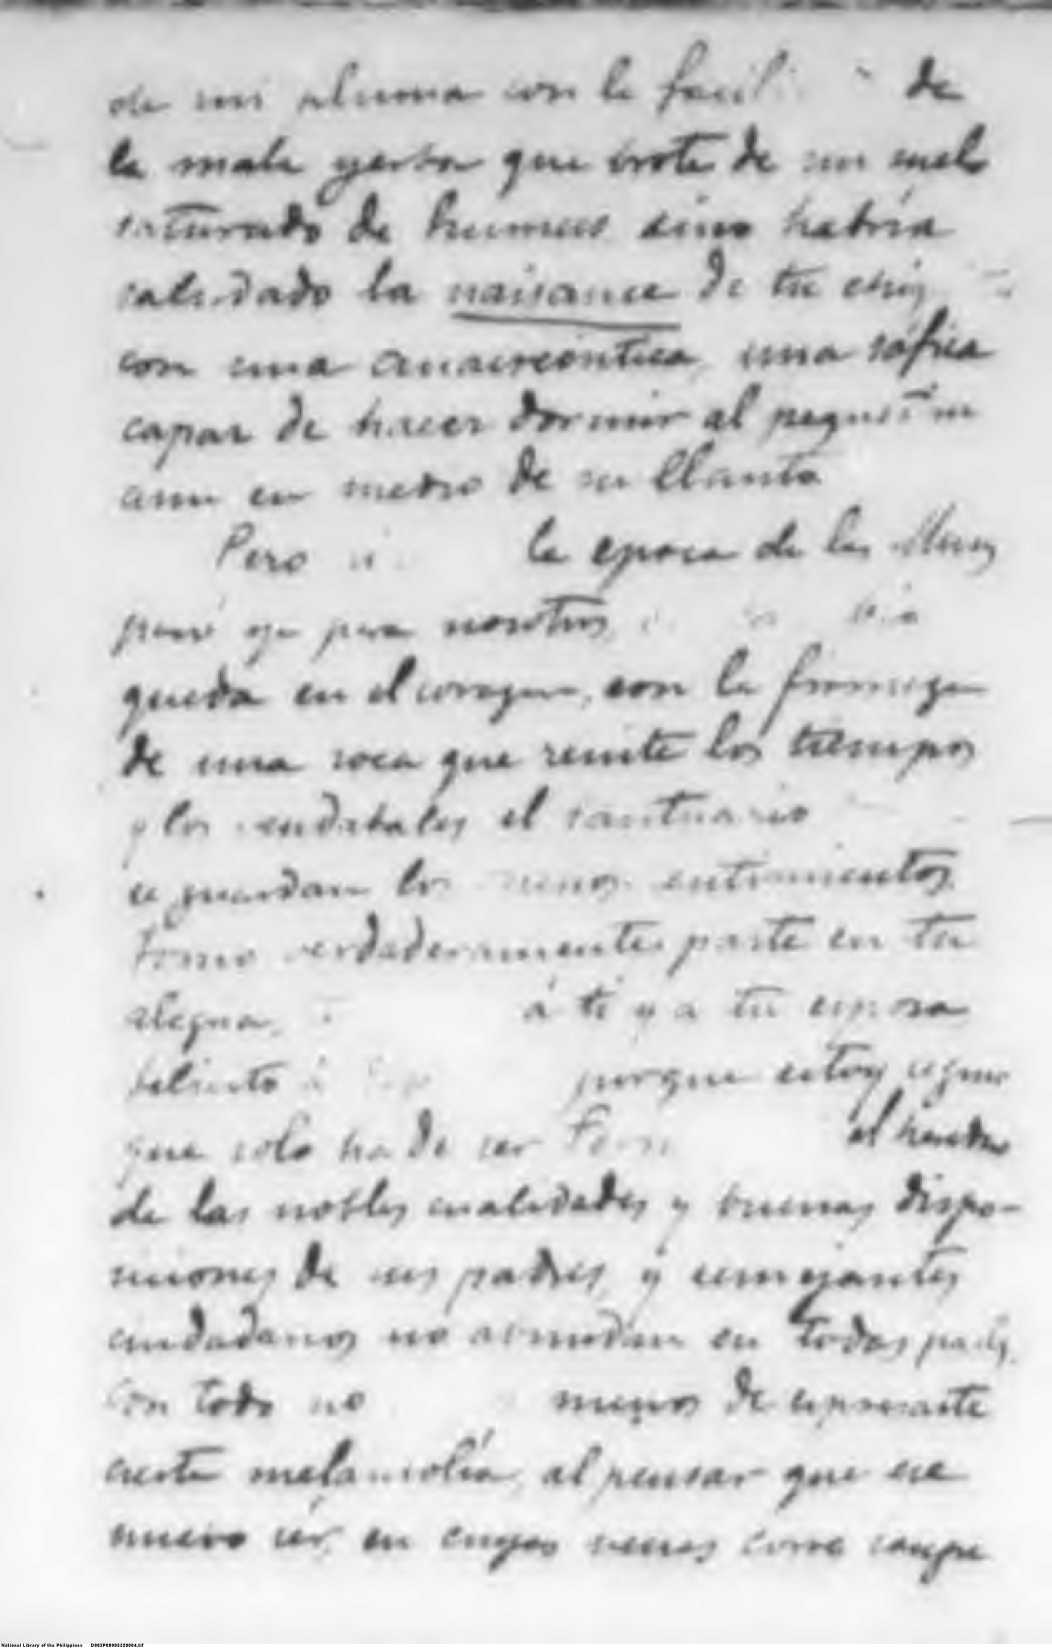 de mi pluma con la facil de
la mala yerba que brota de un suelo
saturado de humus sino habría
saludado la naisance de tu
con una anacreóntica, una sáfica
capaz de hacer dormir al pequeñin
aun en medio de su llanto
Pero la epoca de las Musas
pasó ya para nosotros,
queda en el corazon, con la firmeza
de una roca que resiste los tiempos
y los vendabales el santuario
se guardan los buenos sentimientos.
Tomo verdaderamente parte en tu
alegria, á tí y a tu esposa
felicito á porque estoy seguro
que solo ha de ser el heredero
de las nobles cualidades y buenas dispo-
siciones de sus padres, y semejantes
ciudadanos no abundan en todas partes.
Con todo no menos de espresarte
cierta melancolía, al pensar que ese
nuevo sér, en cuyas venas corre sangre
National Library of the Philippines